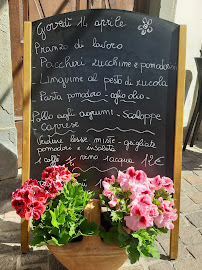 Giovedì 14 aprile
Pranzo di lavoro
- Paccheri zucchine e pomodorini
- Linguine al pesto di rucola
- Pasta pomodoro - aglio olio -
- Pollo agli agrumi - Scaloppe
- Caprese
Verdure lesse miste - grigliate
pomodori e insalata
1 caffè 1/4 vino 1 acqua 12€